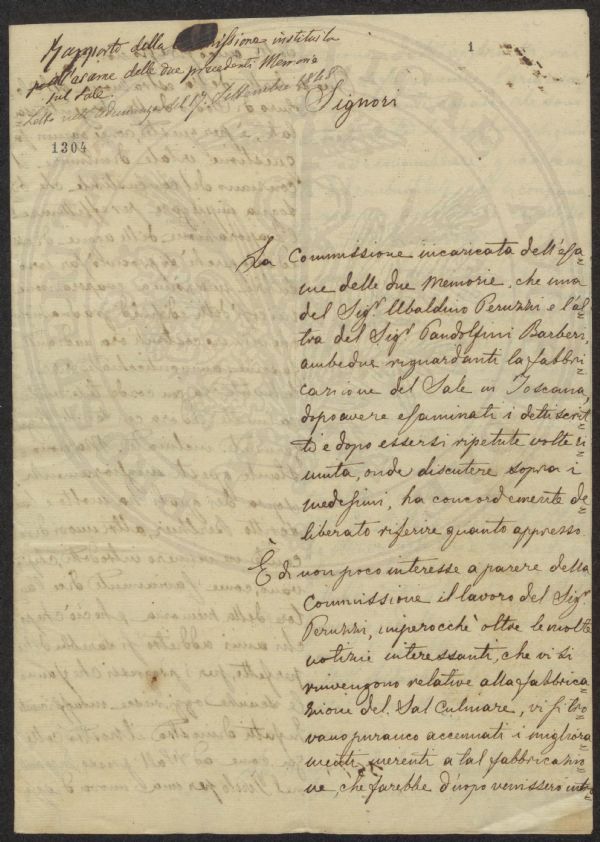 Rapporto della Commissione instituita
all'esame delle due precedenti Memorie
sul Sale.
Letto nell'Adunanza del 17. Settembre 1848.
1
Signori
1304
La Commissione incaricata dell'esa=
me delle due Memorie, che una
del Sigr. Ubaldino Peruzzi e l'al=
tra del Sigr. Pandolfini Barberi,
ambedue riguardanti la fabbri=
cazione del Sale in Toscana,
dopo avere esaminati i detti scrit=
ti e dopo essersi ripetute volte ri=
unita, onde discutere sopra i
medesimi, ha concordemente de=
liberato riferire quanto appresso.
È di non poco interesse a parere della
Commissione il lavoro del Sigr.
Peruzzi, imperocchè oltre le molte
notizie interessanti, che vi si
rinvengono relative alla fabbrica=
zione del Sal Culinare, vi si tro=
vano puranco accennati i migliora=
menti inerenti a tal fabbricazio=
ne, che farebbe d'uopo venissero intro=